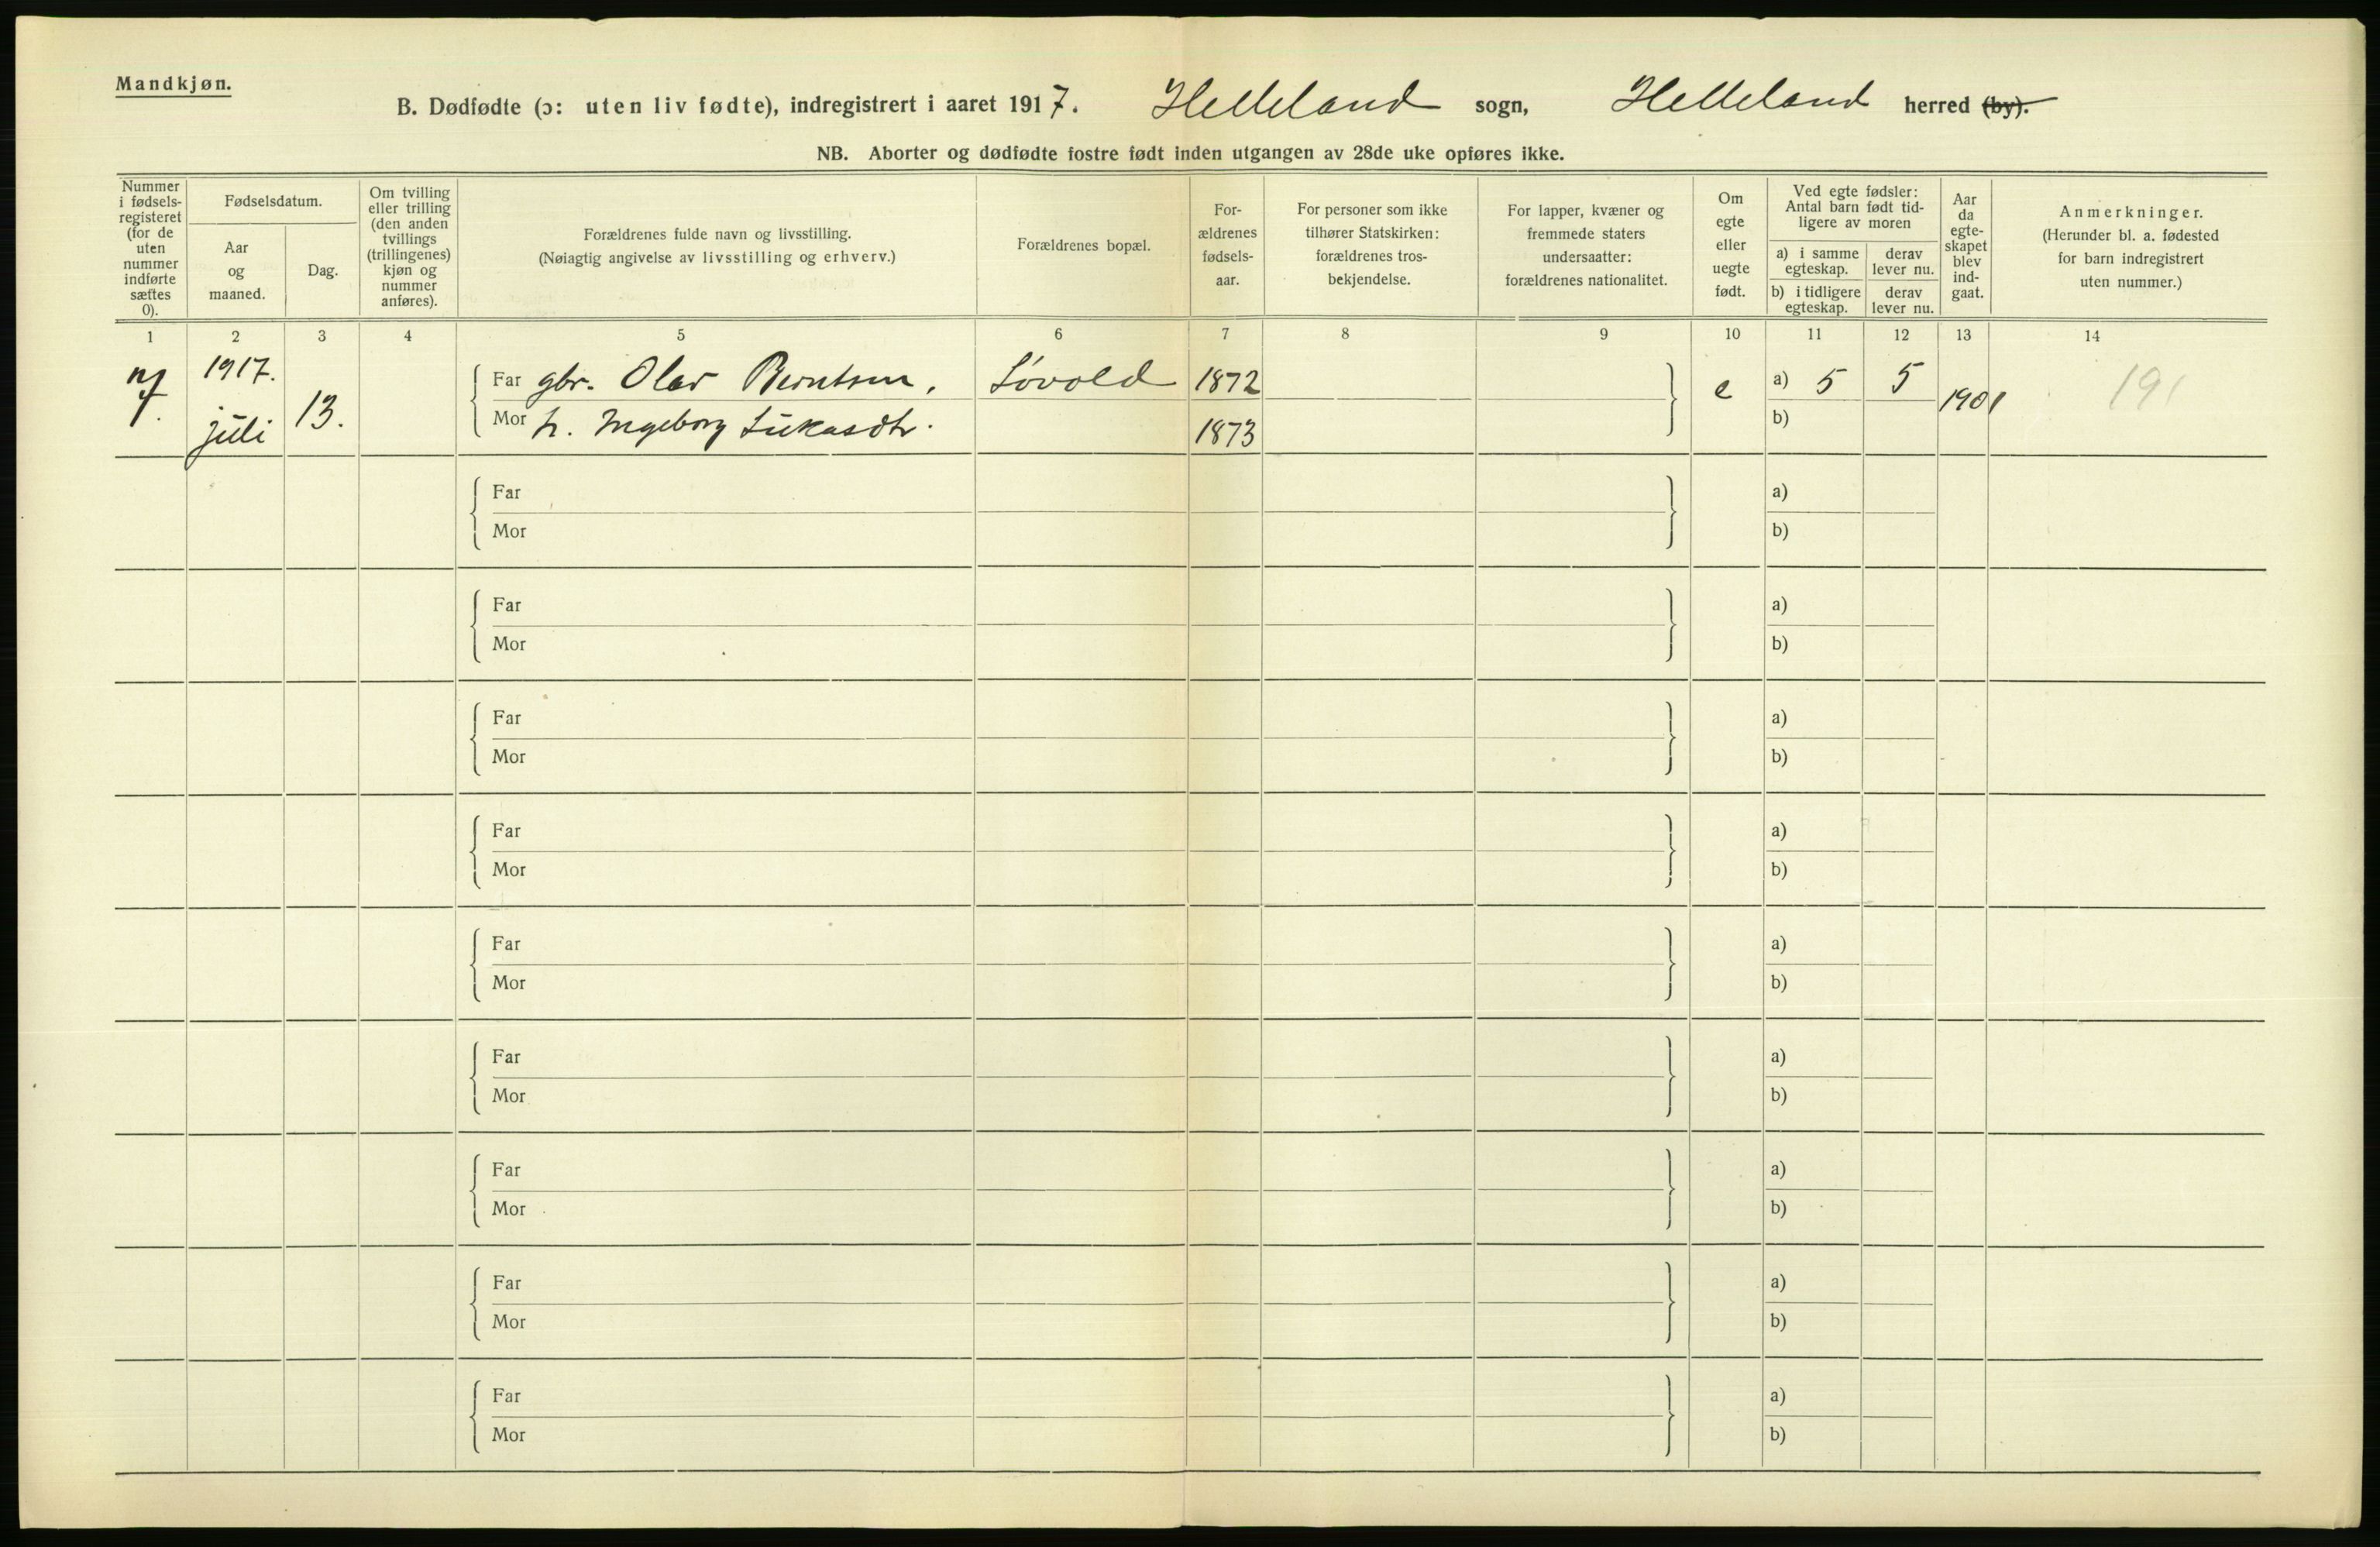 Mandkjøn.
B. Dødfødte (ɔ: uten liv fødte), indregistrert i aaret 1917. Helleland sogn, Helleland herred (by).
NB. Aborter og dødfødte fostre født inden utgangen av 28de uke opføres ikke.
Nummer i fødsels- registeret (for de uten nummer indførte sættes 0).
Fødselsdatum.
Aar og maaned.
Dag.
Om tvilling eller trilling (den anden tvillings (trillingenes) kjøn og nummer anføres).
Forældrenes fulde navn og livsstilling.
(Nøiagtig angivelse av livsstilling og erhverv.)
Forældrenes bopæl.
For- ældrenes fødsels- aar.
For personer som ikke tilhører Statskirken: forældrenes tros- bekjendelse.
For lapper, kvæner og fremmede staters undersaatter: forældrenes nationalitet.
Om egte eller uegte født.
Ved egte fødsler: Antal barn født tid- ligere av moren
a) i samme egteskap.
derav lever nu.
b) i tidligere egteskap.
derav lever nu.
Aar da egte- skapet blev ind- gaat.
Anmerkninger.
(Herunder bl. a. fødested for barn indregistrert uten nummer.)
1 2 3 4 5 6 7 8 9 10 11 12 13 14
1917. juli 13.
Far gbr. Olav Berntsen, Løvold 1872 e a) 5 5 1901 191
Mor h. Ingeborg Lukasdtr. 1873 b)
Far a)
Mor b)
Far a)
Mor b)
Far a)
Mor b)
Far a)
Mor b)
Far a)
Mor b)
Far a)
Mor b)
Far a)
Mor b)
Far a)
Mor b)
Far a)
Mor b)